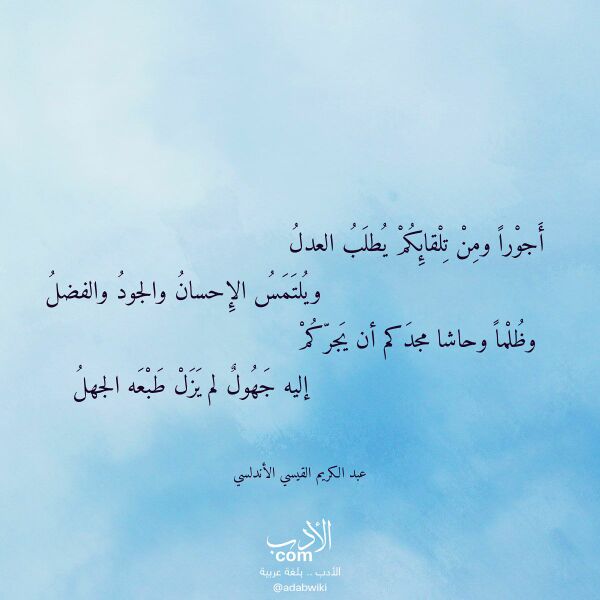 أَجوْراً ومِنْ تِلْقائِكُمْ يُطلَبُ العدلُ
ويُلتَمَسُ الإِحسانُ والجودُ والفضلُ
وظُلْماً وحاشا مجدَكم أن يَجرّكُمْ
إليه جَهُولٌ لم يَزَلْ طَبْعَه الجهلُ
عبد الكريم القيسي الأندلسي
الأدب
com
الأدب .. بلغة عربية
@adabwiki